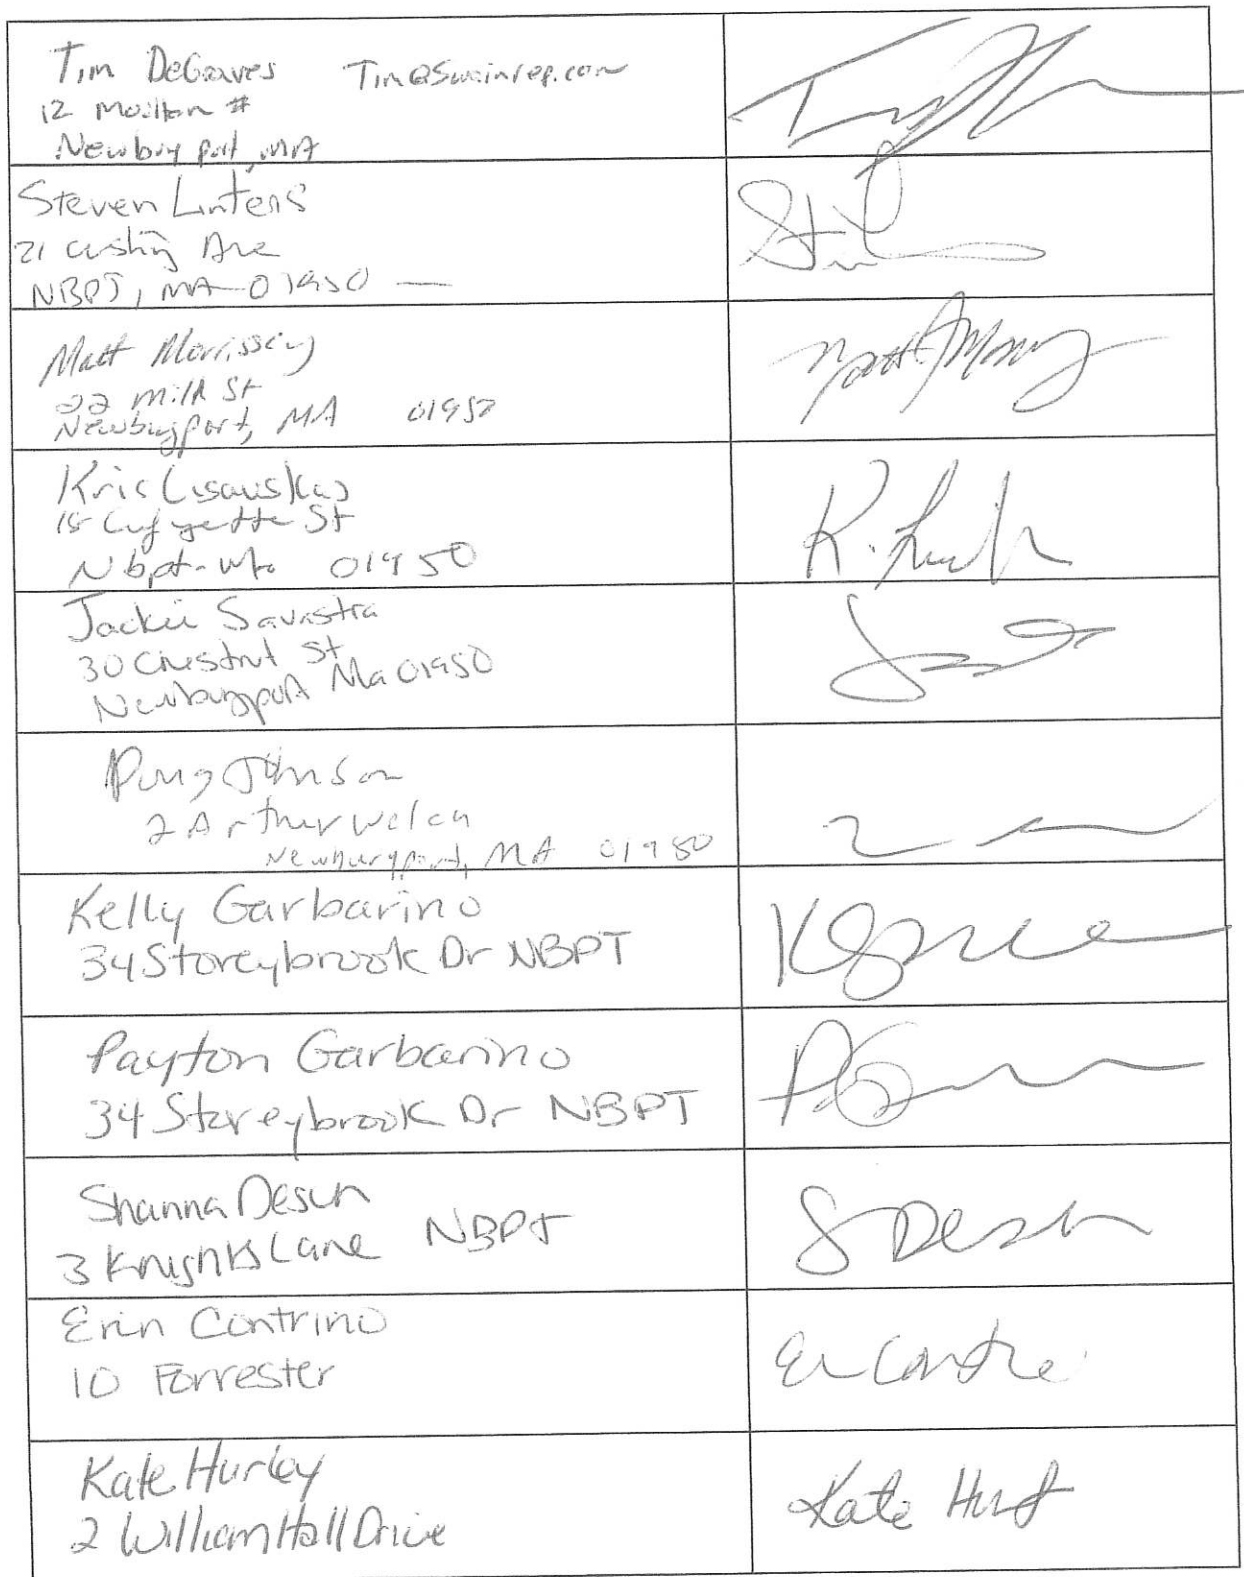 Tim DeGraves Tim@Swainrep.com
12 Moulton #
Newbury port, MA
Steven Linteris
21 Cushing Ave
NBPT, MA 01950 —
Matt Morrissey
22 Milk St
Newburyport, MA 01950
Kris Lisauskas
18 Lafayette St
Nbpt-Ma 01950
K. L
Jackie Savastra
30 Chestnut St
Newburyport Ma 01950
Doug Johnson
2 Arthur Welch
Newburyport, MA 01950
Kelly Garbarino
34 Storeybrook Dr NBPT
Payton Garbarino
34 Storeybrook Dr NBPT
Shanna Desch
3 Knights Lane NBPT
S Desch
Erin Contrino
10 Forrester
Kate Hurley
2 William Hall Drive
Kate